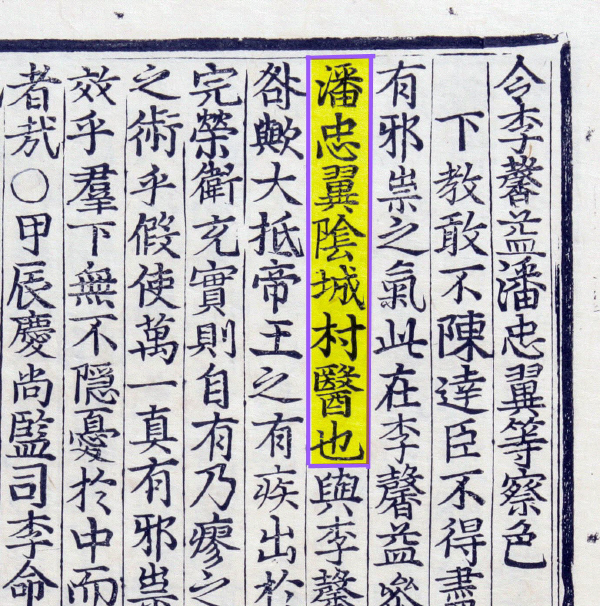 令李馨益潘忠翼等察色
下教敢不陳達臣不得盡
有邪祟之氣此在李馨益
潘忠翼陰城村醫也與李馨
咎歟大抵帝王之有疾出於
完榮衛充實則自有乃瘳之
之術乎假使萬一真有邪祟
效乎羣下無不隱憂於中而
者哉○甲辰慶尚監司李命